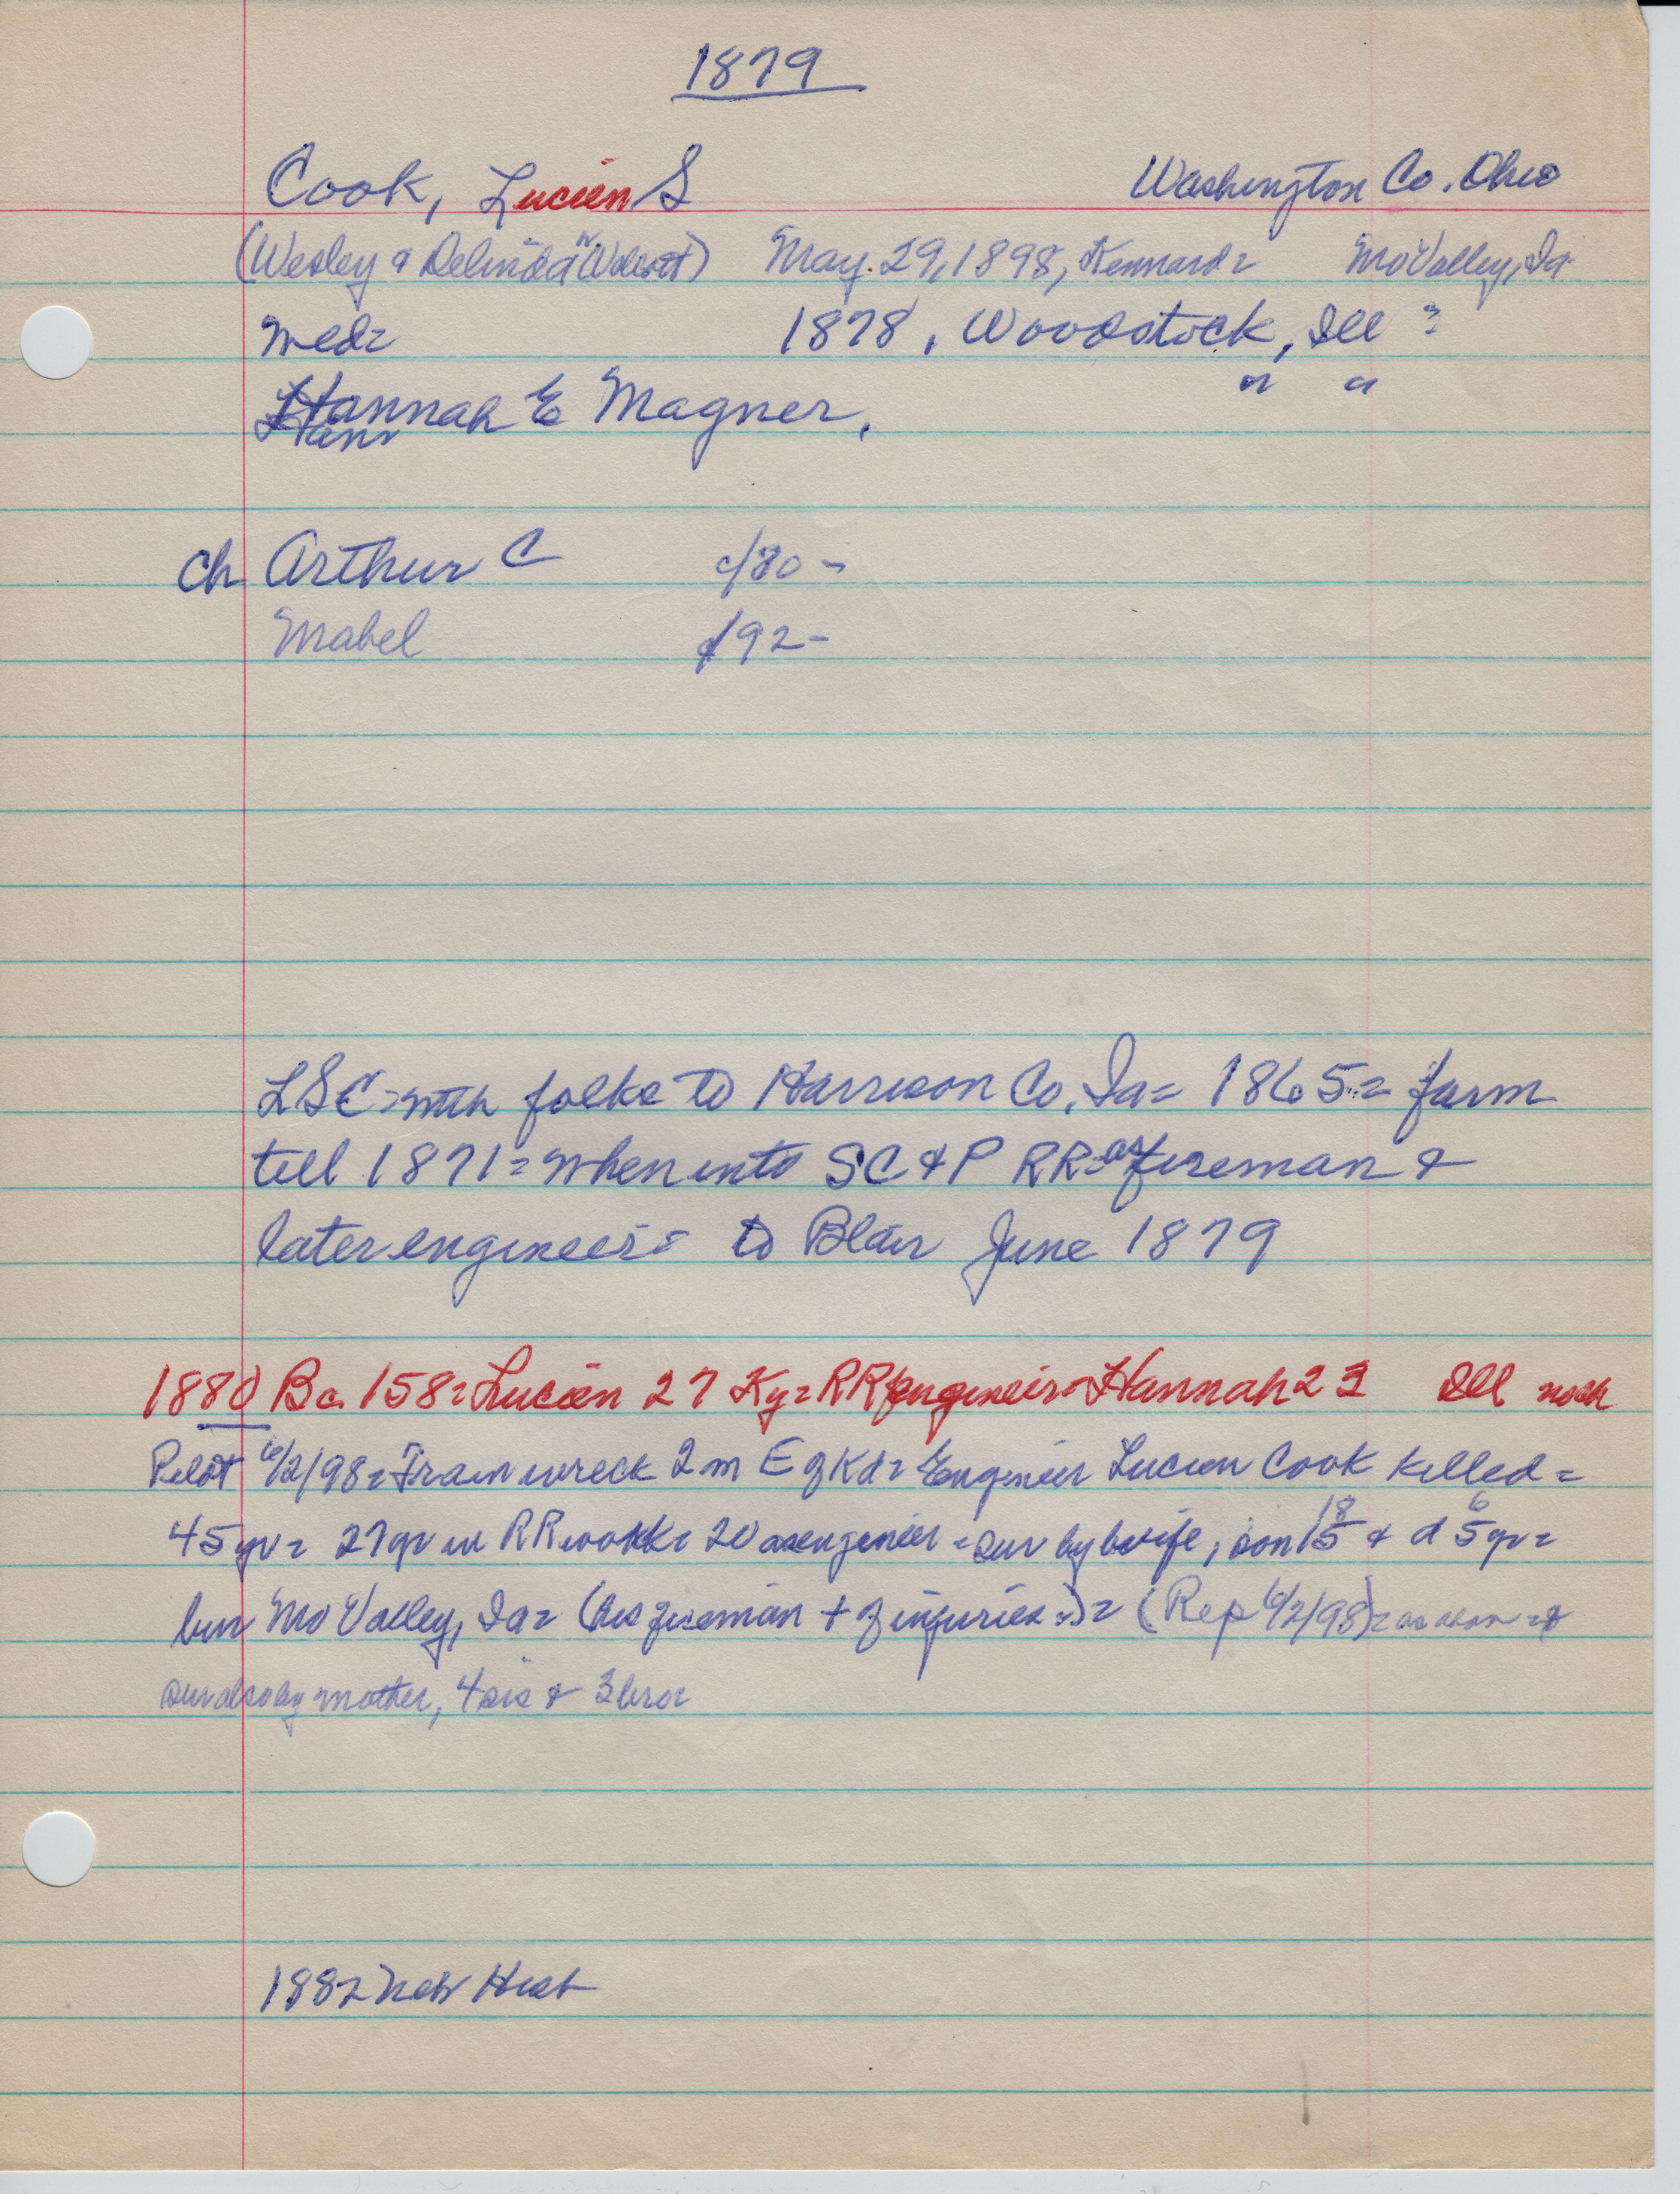 1879
Cook, Lucien S Washington Co. Ohio
(Wesley & Delinda May 29, 1898, Kennard= Mo Valley, Ia
med= 1878, Woodstock, Ill ?
Hannah E Magner, " "
ch Arthur C c/80 -
Mabel c/92-
LSC= with folks to Harrison Co, Ia= 1865= farm
till 1871= when into SC & P RR= as fireman &
later engineer= to Blair June 1879
1880 Bc. 158= Lucien 27 Ky= RR engineer= Hannah 23 Ill noch
Pilot 6/2/98= Train wreck 2 m E of Kd= Engineer Lucien Cook killed=
45 yr= 27 yr in RR work= 20 as engineer= sur by wife, son 18 & d 6 yr=
bur Mo Valley, Ia= (his fireman + of injuries=)= (Rep 6/2/98)= as above= &
sur also by mother, 4 sis & 3 bro=
1882 Neb Hist